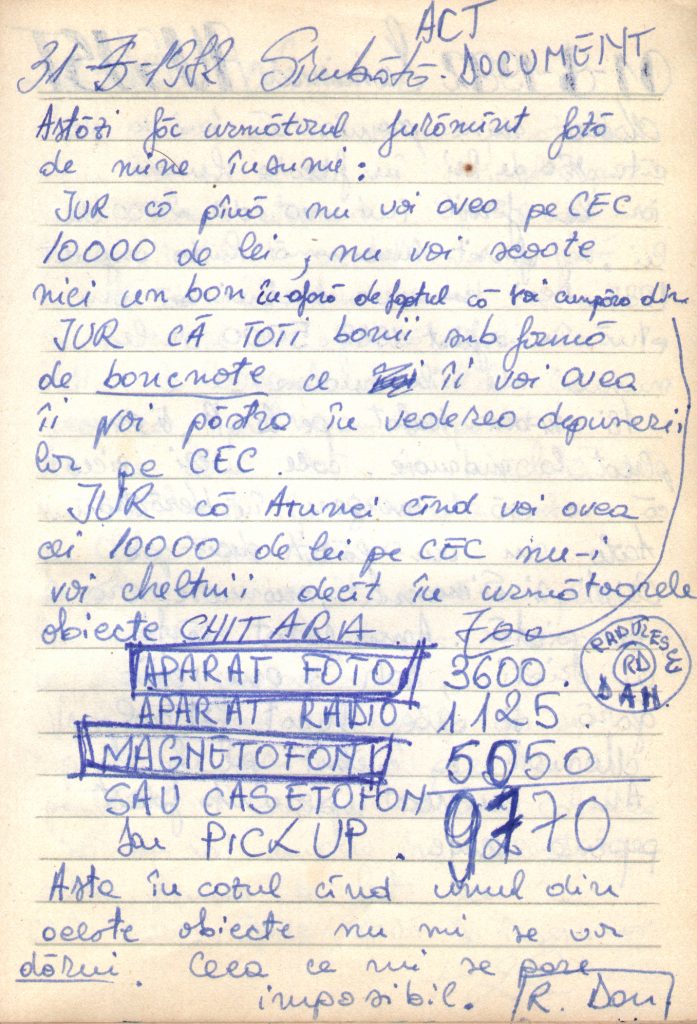 ACT
31-X-1982 Sîmbătă. DOCUMENT
Astăzi fac următorul jurămînt fată
de mine însumi:
JUR că pînă nu voi avea pe CEC
10000 de lei, nu voi scoate
nici un ban în afară de faptul că voi cumpăra din
JUR CĂ TOTI banii sub formă
de bancnote ce îi voi avea
îi voi păstra în vederea depunerii
lor pe CEC.
JUR că Atunci cînd voi avea
cei 10000 de lei pe CEC nu-i
voi cheltuii decît în următoarele
obiecte CHITARIA 700
APARAT FOTO 3600.
APARAT RADIO 1125.
MAGNETOFON 5050
SAU CASETOFON 9770
sau PICKUP.
RADULESCU
RD
DAN
Asta în cazul cînd unul din
aceste obiecte nu mi se vor
dărui. Ceea ce mi se pare
imposibil. R. Dan.